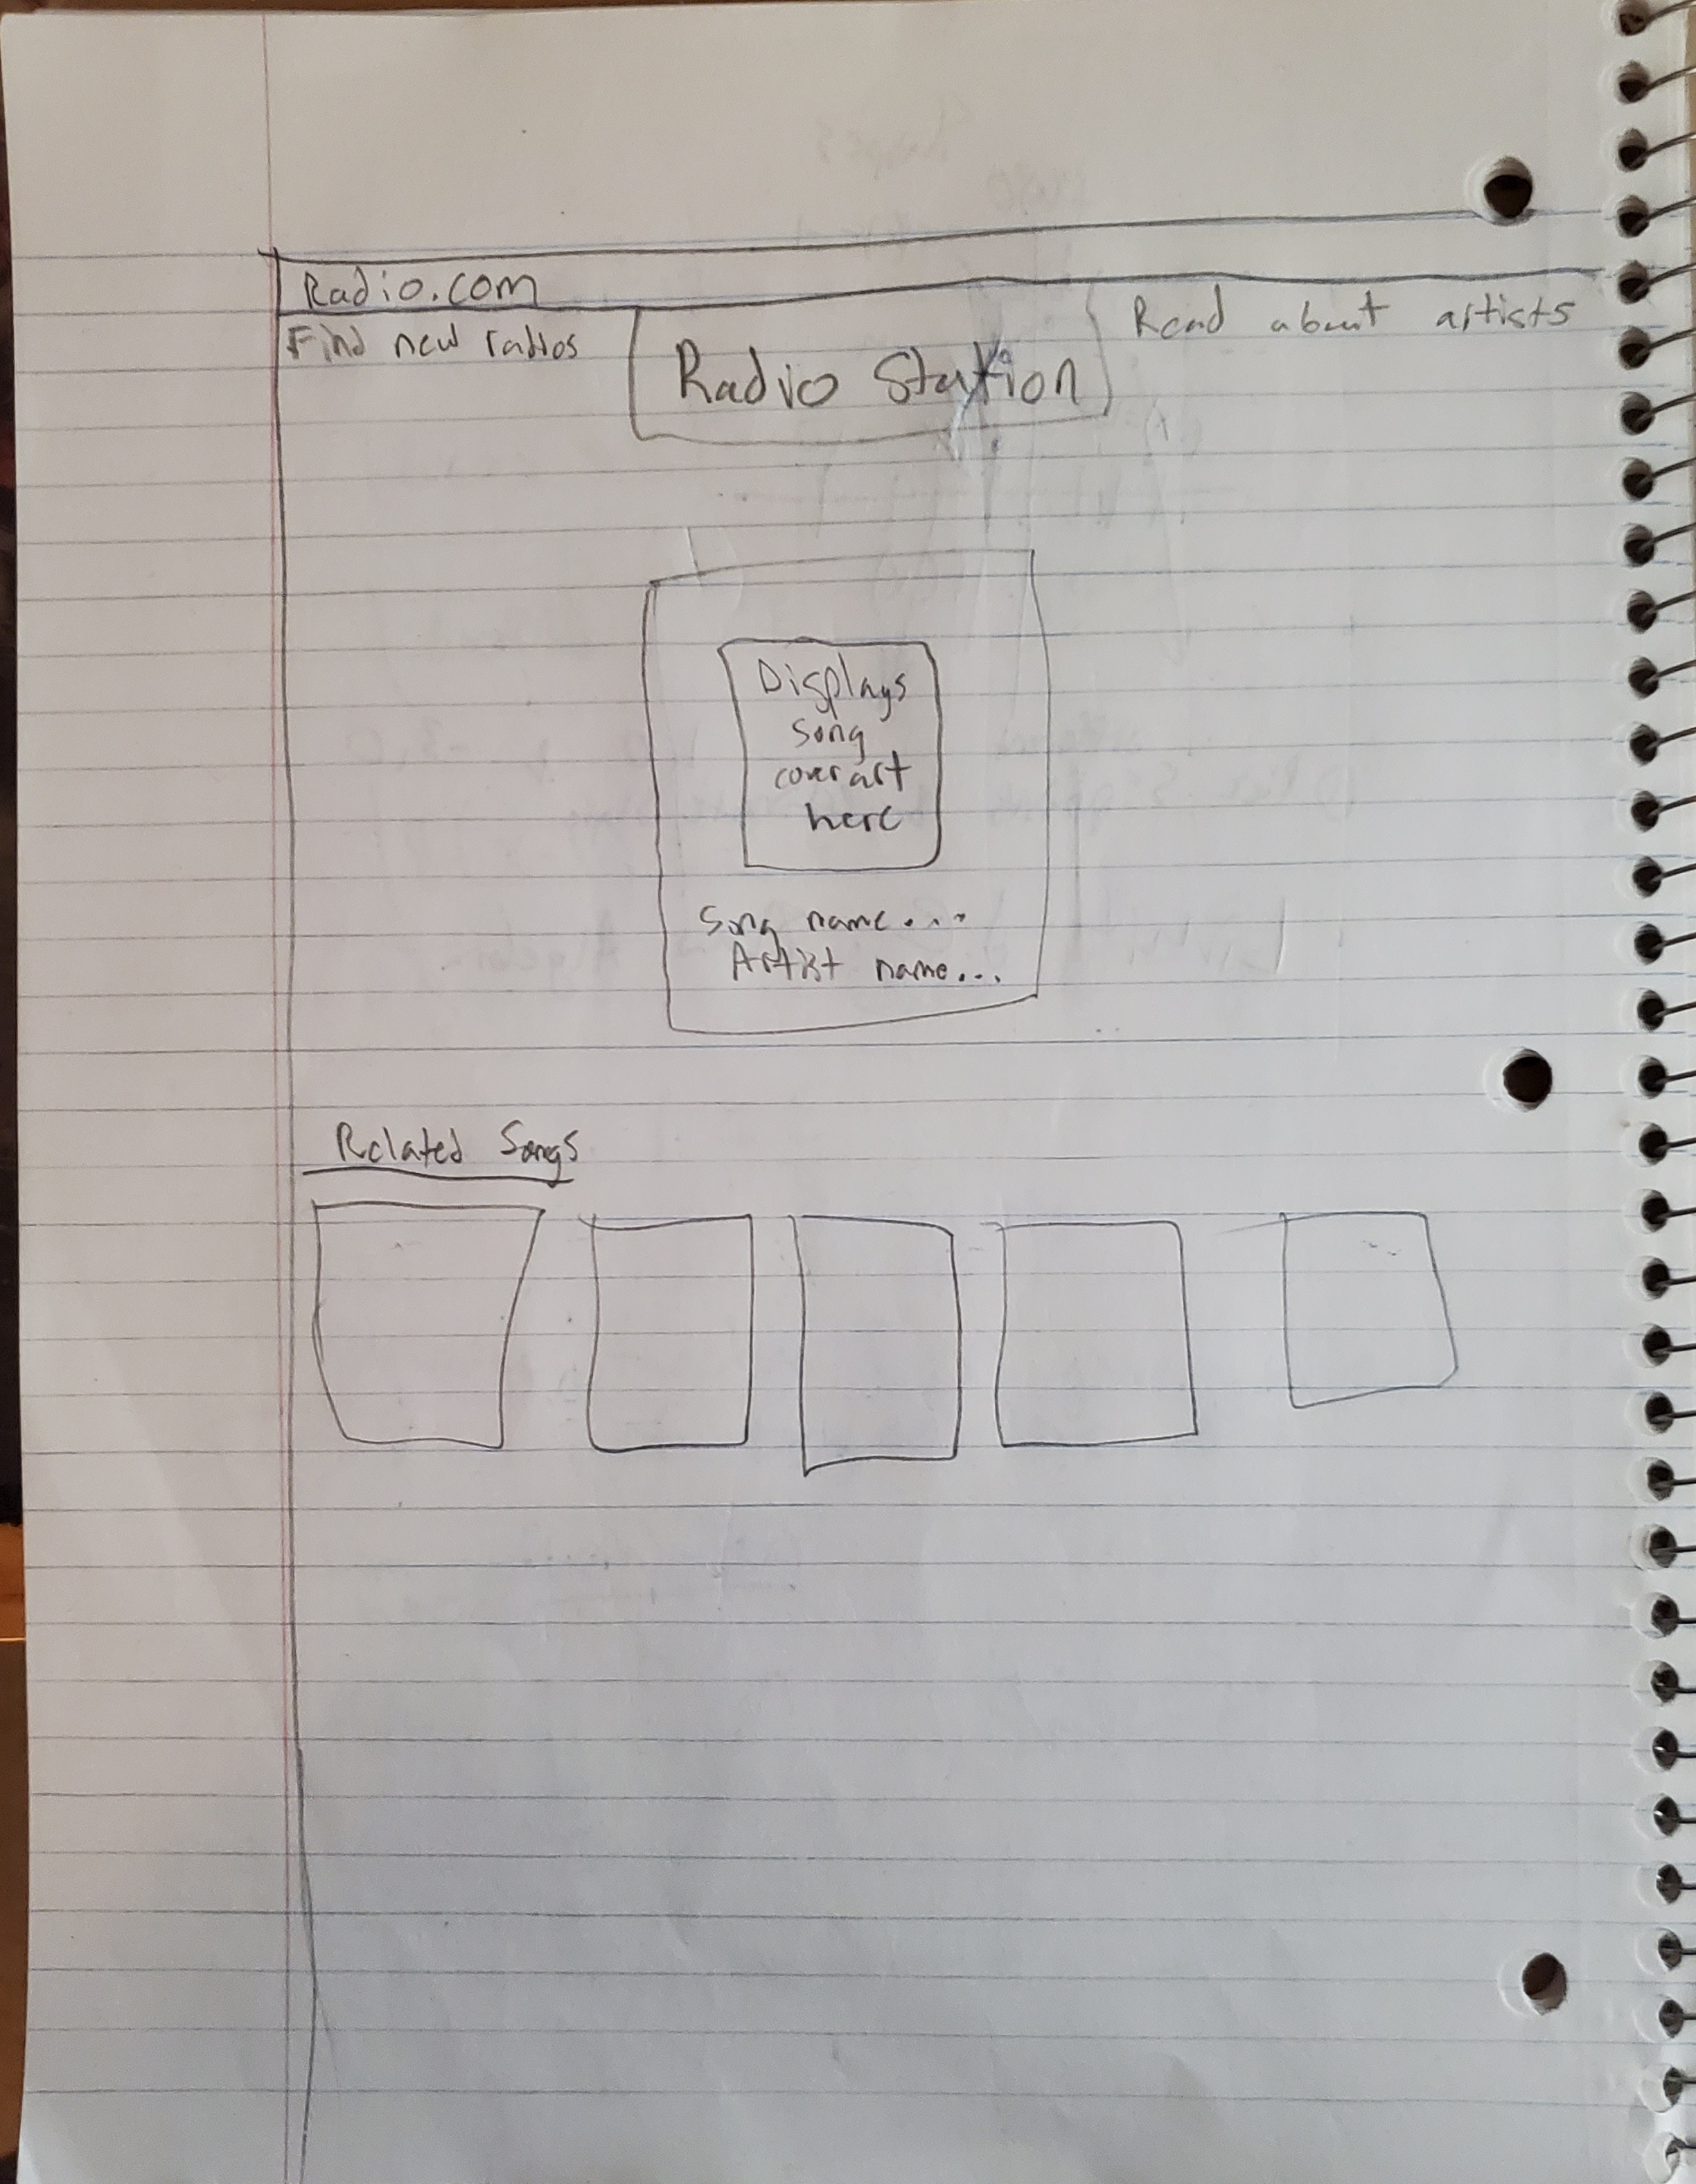 Radio.com
Find new radios
Radio Station
Read about artists
Displays
song
cover art
here
Song name....
Artist name...
Related Songs